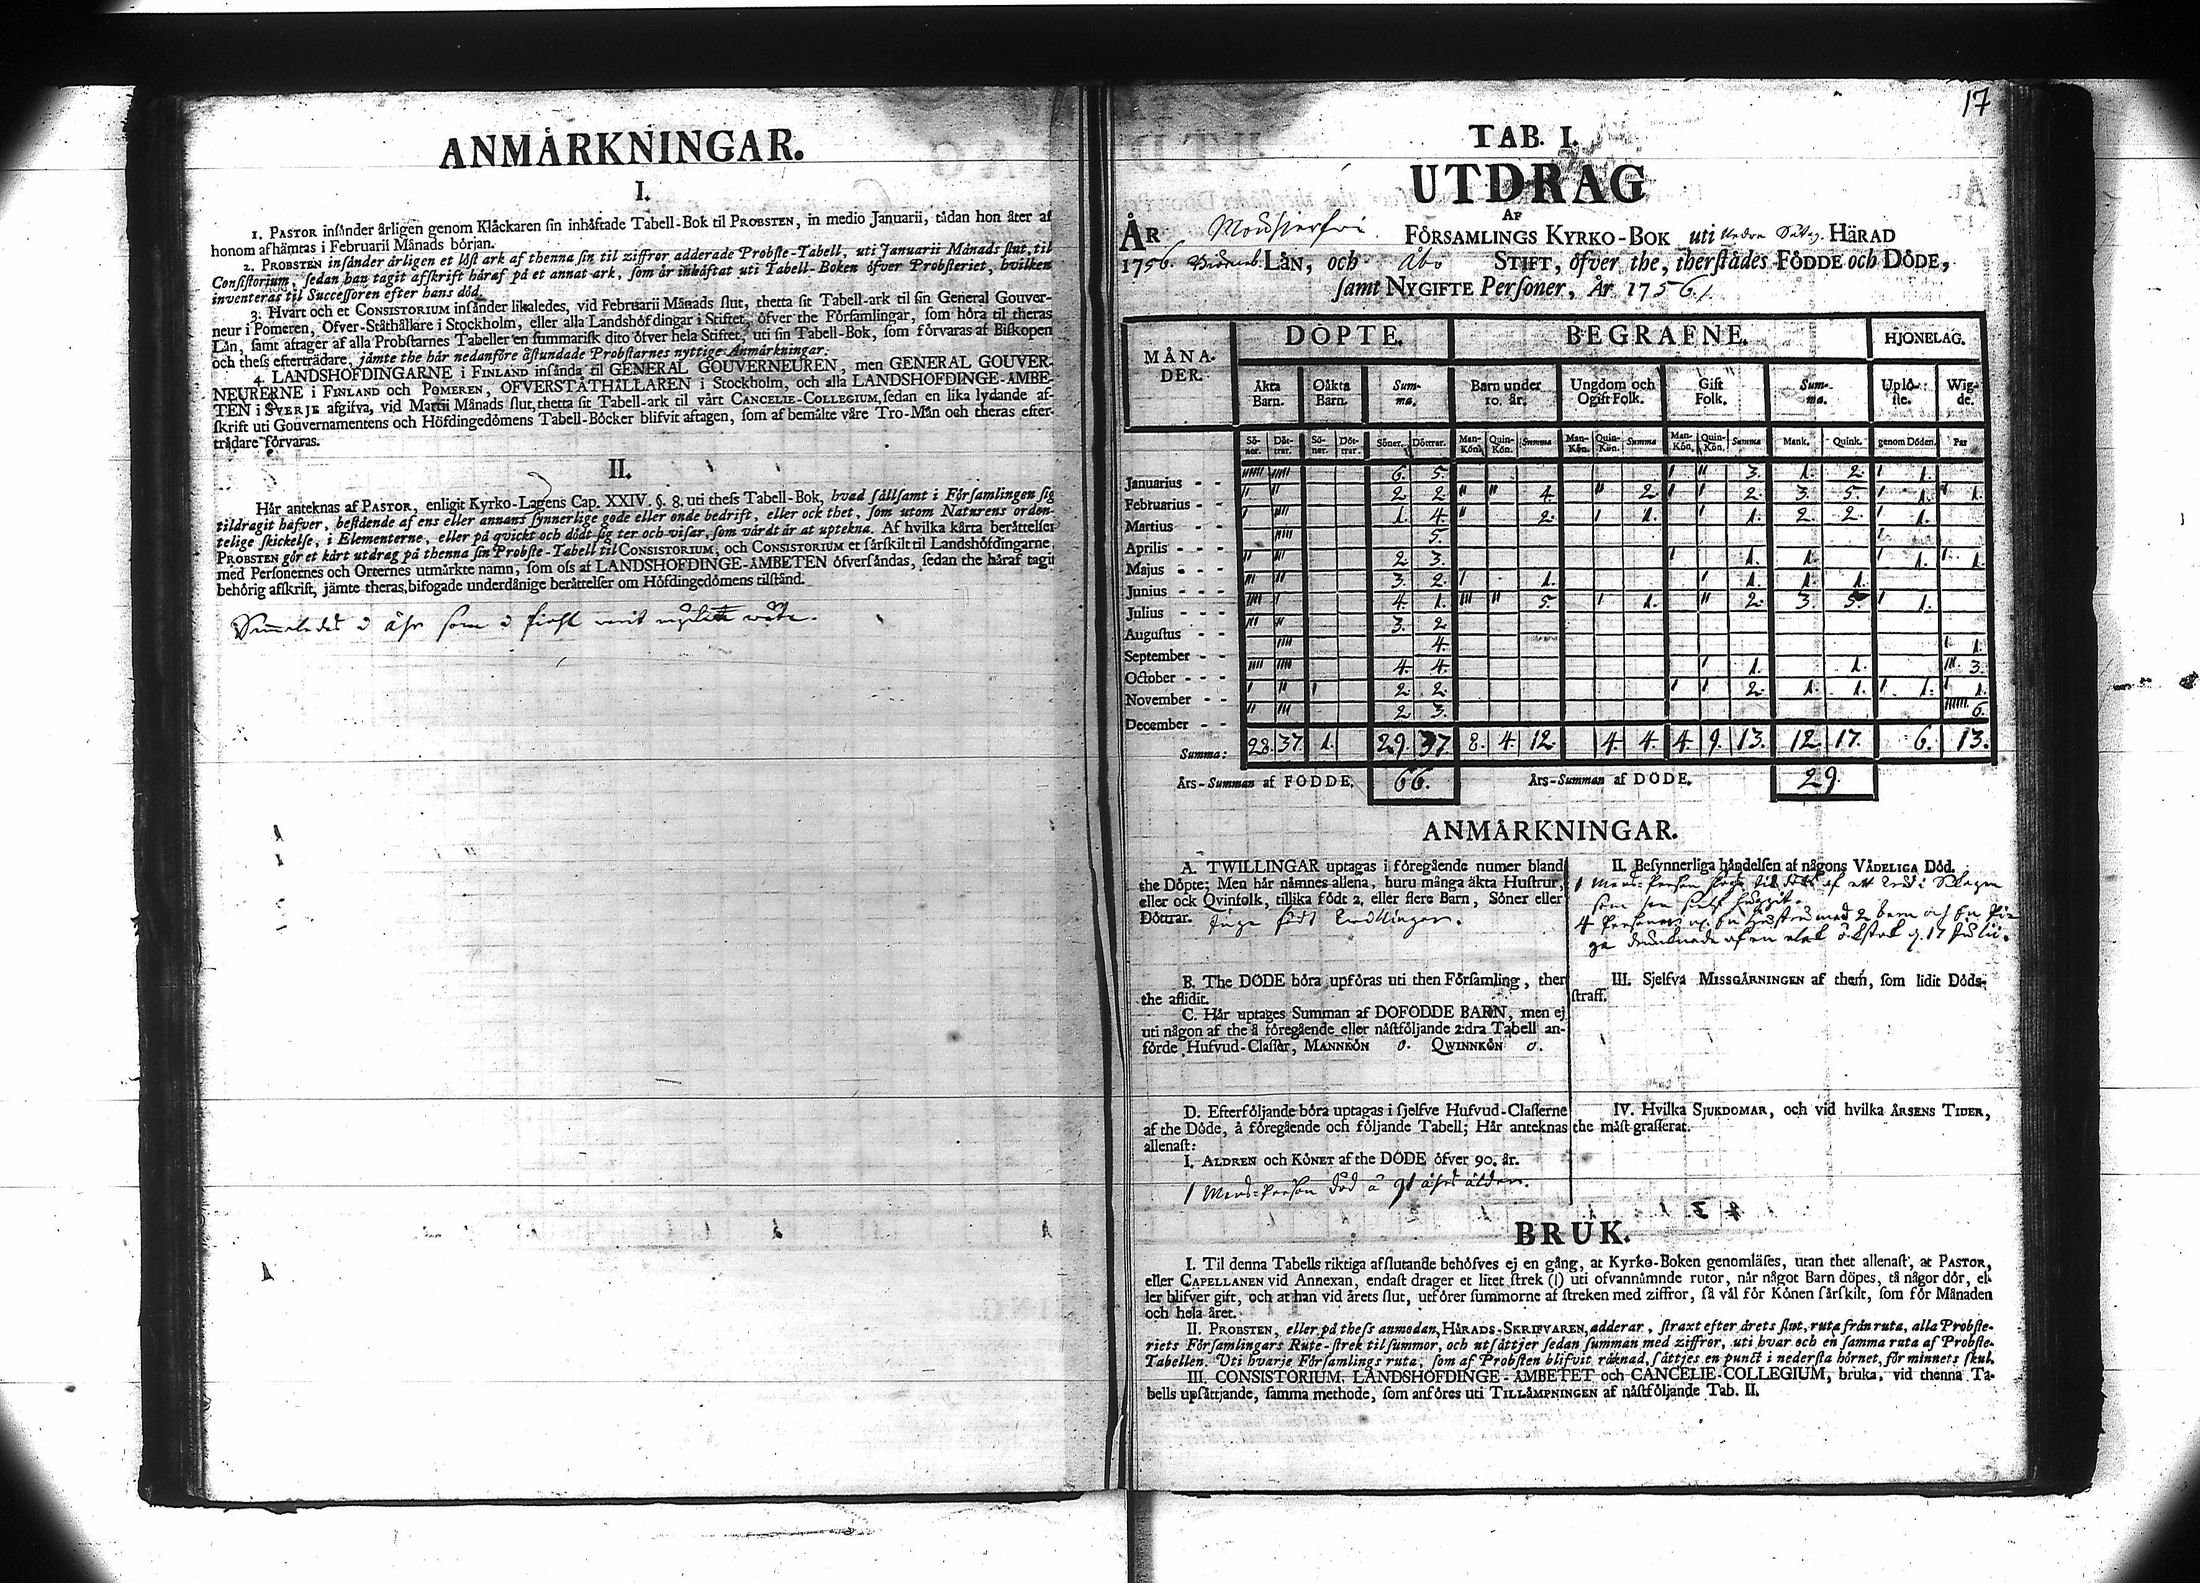 ANMÅRKNINGAR.
I.
1. PASTOR insånder årligen genom Klåckaren sin inhåftade Tabell-Bok til PROBSTEN, in medio Januarii, tådan hon åter af
honom afhåmtas i Februarii Månads början.
2. PROBSTEN insånder årligen et löst ark af thenna sin til ziffror adderade Probste-Tabell, uti Januarii Månads slut, til
Consistorium, sedan han tagit afskrift håraf på et annat ark, som år inhåftat uti Tabell-Boken öfver Probsteriet, hvilken
inventeras til Successoren efter hans död.
3. Hvart och et CONSISTORIUM insånder likaledes, vid Februarii Månads slut, thetta sit Tabell-ark til sin General Gouver-
neur i Pomeren, Öfver-Ståthållare i Stockholm, eller alla Landshöfdingar i Stiftet, öfver the Församlingar, som höra til theras
Lån, samt aftager af alla Probstarnes Tabeller en summarisk dito öfver hela Stiftet, uti sin Tabell-Bok, som förvaras af Biskopen
och thess efterträdare, jämte the hår nedanföre åstundade Probstarnes nyttige Anmårkningar.
4. LANDSHÖFDINGARNE i FINLAND insånda til GENERAL GOUVERNEUREN, men GENERAL GOUVER-
NEURERNE i FINLAND och POMEREN, ÖFVERSTÅTHÅLLAREN i Stockholm, och alla LANDSHÖFDINGE-ÅMBE-
TEN i SVERJE afgifva, vid Martii Månads slut, thetta sit Tabell-ark til vårt CANCELIE-COLLEGIUM, sedan en lika lydande af-
skrift uti Gouvernamentens och Höfdingedömens Tabell-Böcker blifvit aftagen, som af bemålte våre Tro-Mån och theras efter-
trådare förvaras.
II.
Hår anteknas af PASTOR, enligit Kyrko-Lagens Cap. XXIV. §. 8. uti thess Tabell-Bok, hvad sållsamt i Församlingen sig
tildragit hafver, bestående af ens eller annans synnerlige gode eller onde bedrift, eller ock thet, som utom Naturens orden-
telige skickelse, i Elementerne, eller på qvickt och dödt sig ter och visar, som vårdt år at uptekna. Af hvilka kårta beråttelser
PROBSTEN gör et kårt utdrag på thenna sin Probste-Tabell til CONSISTORIUM, och CONSISTORIUM et sårskilt til Landshöfdingarne,
med Personernes och Orternes utmårkte namn, som oss af LANDSHÖFDINGE-ÅMBETEN öfversåndas, sedan the håraf tagit
behörig afskrift, jämte theras bifogade underdånige beråttelser om Höfdingedömens tilstånd.
17
TAB. I.
UTDRAG
AF
ÅR FÖRSAMLINGS KYRKO-BOK uti HÄRAD
1756. LÅN, och Åbo STIFT, öfver the, therstådes FÖDDE och DÖDE,
samt NYGIFTE Personer, År 1756.
MÅNA-DER. DÖPTE. BEGRAFNE. HJONELAG.
Åkta Barn. Oåkta Barn. Sum-ma. Barn under 10. år. Ungdom och Ogift Folk. Gift Folk. Sum-ma. Uplö-ste. Wig-de.
Sö-ner. Döt-trar. Sö-ner. Döt-trar. Söner. Döttrar. Man-Kön. Quin-Kön. Summa Man-Kön. Quin-Kön. Summa Man-Kön. Quin-Kön. Summa Mank. Quink. genom Döden. Par
Januarius - - 6. 5. 3. 1. 2. 1.
Februarius - - 2 2 4. 2 2. 3. 5. 1. 1.
Martius - - 1. 4. 2. 1. 1. 2. 2. 1.
Aprilis - - 5.
Majus - - 2 3. 1. 1. 1. 1.
Junius - - 3. 2. 1. 1. 1. 1.
Julius - - 4. 1. 5. 1. 2. 3. 5. 1.
Augustus - - 3. 2
September - - 4. 1.
October - - 4. 4. 1. 1. 3.
November - - 2 2. 2. 1. 1. 1. 1.
December - - 2 3. 6.
Summa: 28. 37. 1. 29. 37 8. 4. 12. 4. 4. 4. 9. 13. 12. 17. 6. 13.
Års-Summan af FÖDDE. 66. Års-Summan af DÖDE. 29.
ANMÅRKNINGAR.
A. TWILLINGAR uptagas i föregående numer bland
the Döpte; Men hår nåmnes allena, huru många äkta Hustrur,
eller ock Qvinfolk, tillika födt 2, eller flere Barn, Söner eller
Döttrar. Inga födt twillingar.
B. The DÖDE böra upföras uti then Församling, ther
the aflidit.
C. Hår uptages Summan af DÖFÖDDE BARN, men ej
uti någon af the å föregående eller nåstföljande 2:dra Tabell an-
förde Hufvud-Classer, MANNKÖN 0. QWINNKÖN 0.
D. Efterföljande böra uptagas i sjelfve Hufvud-Classerne
af the Döde, å föregående och följande Tabell; Hår anteknas
allenast:
I. ÅLDREN och KÖNET af the DÖDE öfver 90. år.
1 Mans-Person död å 91 åhrs ålder.
II. Besynnerliga håndelsen af någons VÅDELIGA Död.
1 Mans-Person af ett träd i
som han sjelf huggit.
4 Personer en hustru med 2 barn och en Pi-
ga drunknade af en ökstok d. 17 Julii.
III. Sjelfva MISSGÅRNINGEN af them, som lidit Döds-
straff.
IV. Hvilka SJUKDOMAR, och vid hvilka ÅRSENS TIDER,
the måst grasserat.
BRUK.
I. Til denna Tabells riktiga afslutande behöfves ej en gång, at Kyrko-Boken genomläses, utan thet allenast, at PASTOR,
eller CAPELLANEN vid Annexan, endast drager et litet strek (|) uti ofvannåmnde rutor, når något Barn döpes, tå någor dör, el-
ler blifver gift, och at han vid årets slut, utförer summorne af streken med ziffror, så vål för Könen sårskilt, som för Månaden
och hela året.
II. PROBSTEN, eller på thess anmodan, HÅRADS-SKRIFVAREN, adderar, straxt efter årets slut, ruta från ruta, alla Probste-
riets Församlingars Rute-strek til summor, och utsåttjer sedan summan med ziffror, uti hvar och en samma ruta af Probste-
Tabellen. Uti hvarje Församlings ruta, som af Probsten blifvit råknad, såttjes en punct i nedersta hörnet, för minnets skul.
III. CONSISTORIUM, LANDSHÖFDINGE-ÅMBETET och CANCELIE-COLLEGIUM, bruka, vid thenna Ta-
bells upsåttjande, samma methode, som anföres uti TILLÅMPNINGEN af nåstföljande Tab. II.